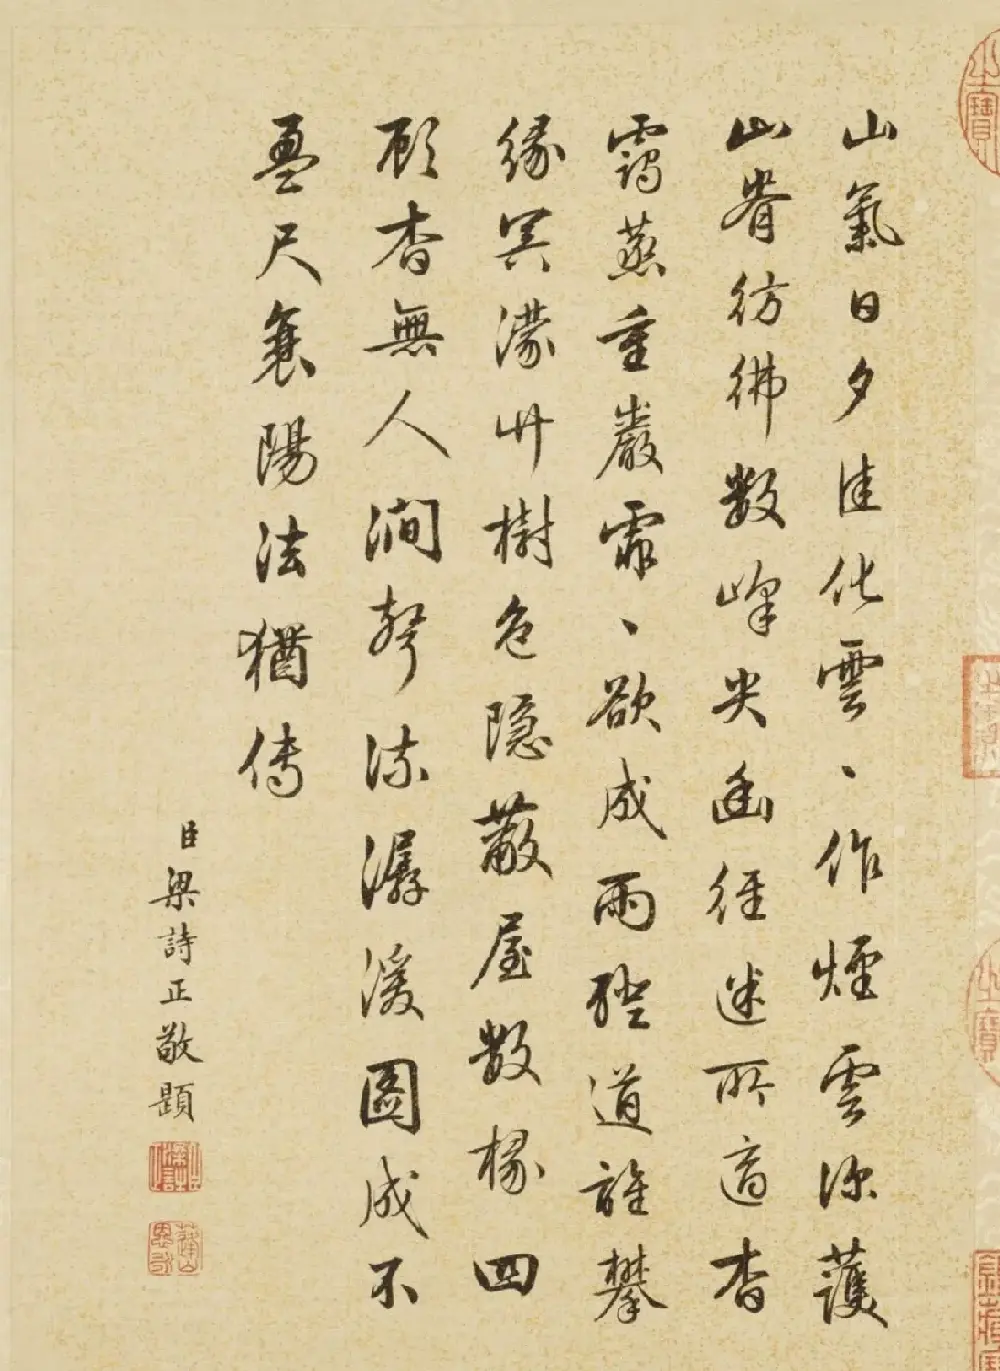 山氣日夕佳化雲、作煙雲深護
山脊彷彿數峰尖幽徑迷所適杳
靄蒸重巖霏、欲成雨磴道誰攀
緣冥濛竹樹色隱蔽屋數椽四
顧杳無人澗聲流潺湲圖成不
盈尺襄陽法猶傳
臣梁詩正敬題